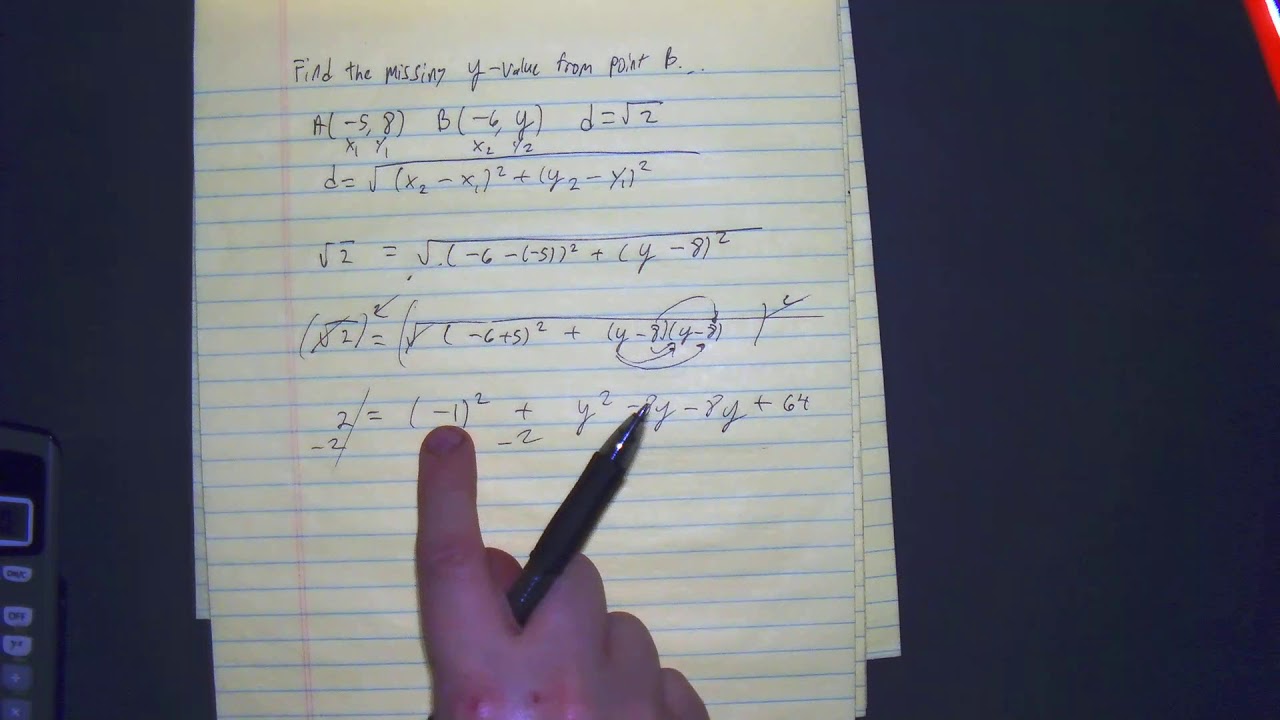 Find the missing y-value from point B...
A(-5, 8) B(-6, y) d=√2
x₁ y₁ x₂ y₂
d=√(x₂ - x₁)² + (y₂ - y₁)²
√2 = √(-6 -(-5))² + (y - 8)²
(√2)² = (√(-6+5)² + (y-8)(y-8))²
2 = (-1)² + y² -8y - 8y + 64
-2 -2
ON/C
OFF
yˣ
÷
×